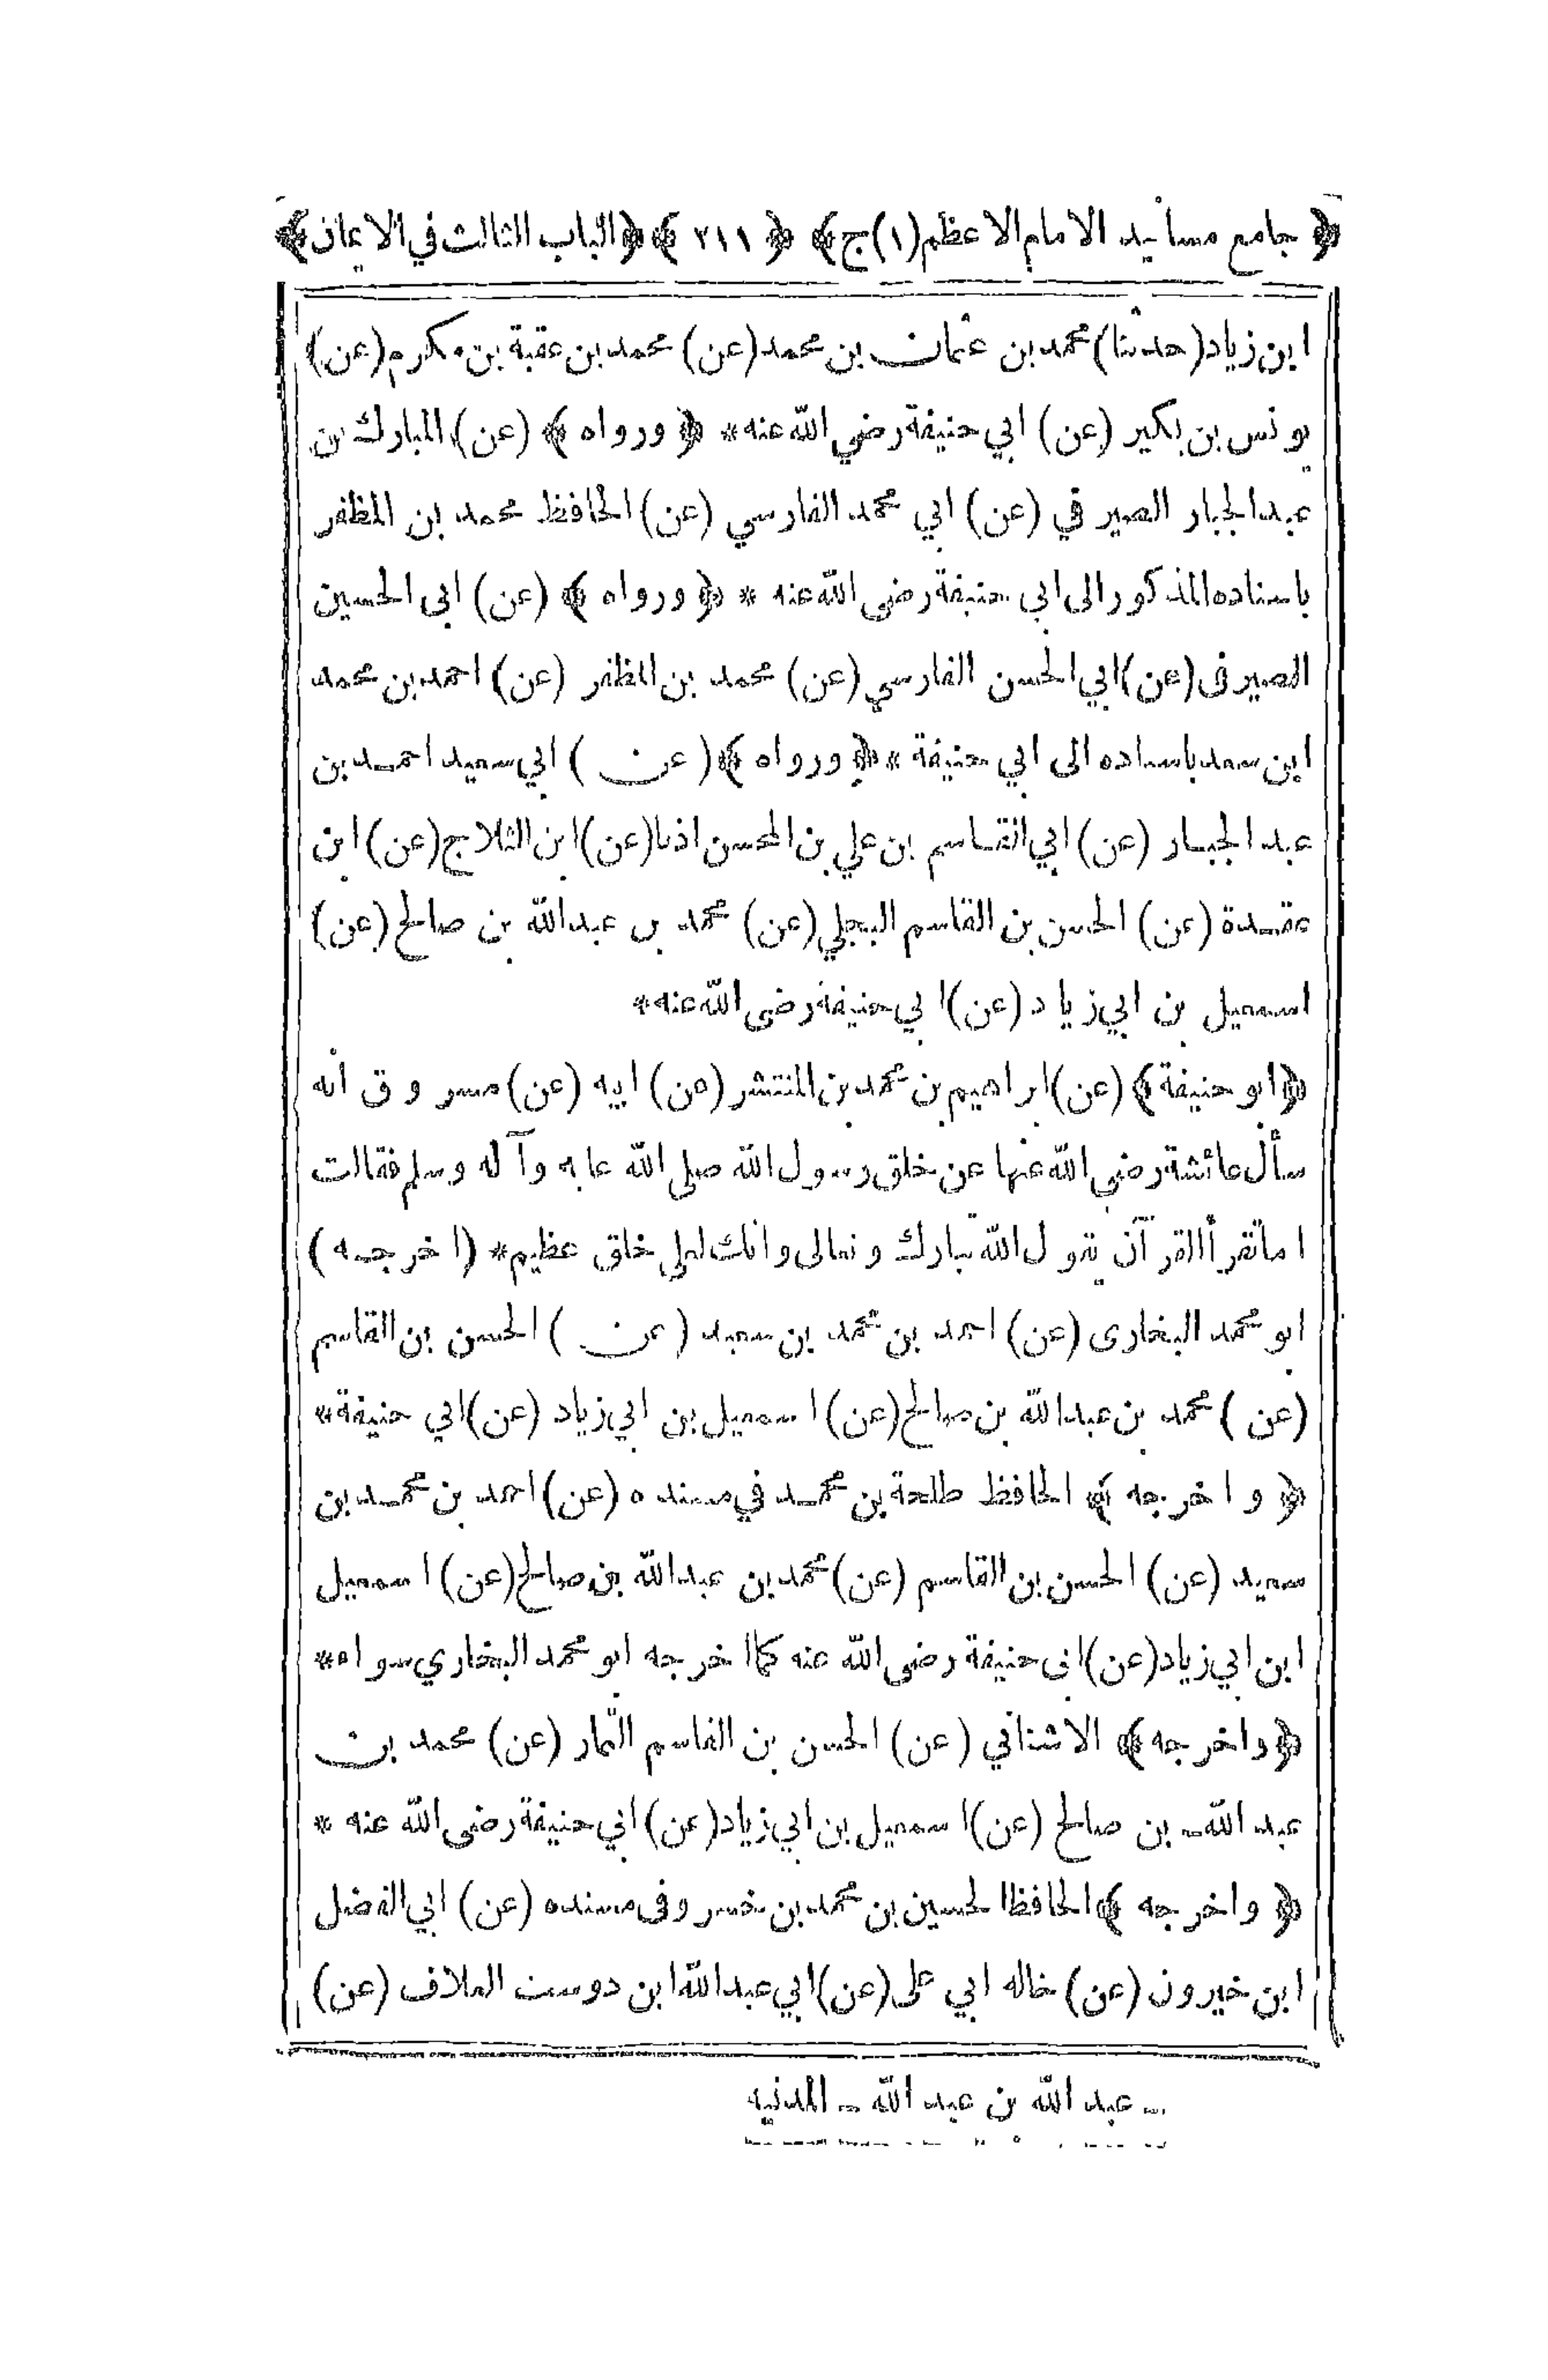 ﴿ جامع مسانيد الامام الاعظم(١)ج﴾ ﴿ ٢١١ ﴾ ﴿الباب الثالث في الايمان﴾
ابن زياد(حدثنا)محمد بن عثمان بن محمد(عن) محمد بن عقبة بن مكرم(عن)
يونس بن بكير (عن) ابي حنيفة رضي الله عنه* ﴿ ورواه ﴾ (عن) المبارك بن
عبدالجبار الصير في (عن) ابي محمد الفارسي (عن) الحافظ محمد بن المظفر
باسناده المذكور الى ابي حنيفة رضى الله عنه * ﴿ ورواه ﴾ (عن) ابى الحسين
الصيرفى(عن)ابي الحسن الفارسي(عن) محمد بن المظفر (عن) احمد بن محمد
ابن سعد باسناده الى ابي حنيفة *﴿ ورواه ﴾(عن) ابي سعيد احمد بن
عبد الجبار (عن) ابي القاسم بن علي بن المحسن اذنا(عن)ابن الثلاج(عن) ابن
عقدة (عن) الحسن بن القاسم البجلي(عن) محمد بن عبدالله بن صالح(عن)
اسمعيل بن ابي زياد (عن)ابي حنيفة رضى الله عنه*
﴿ابو حنيفة﴾ (عن)ابراهيم بن محمد بن المنتشر(عن) ابيه (عن)مسروق انه
سأل عائشة رضي الله عنها عن خلق رسول الله صلى الله عليه وآله وسلم فقالت
اما تقرأ القرآن يقول الله تبارك وتعالى وانك لعلى خلق عظيم* (اخرجه)
ابو محمد البخارى (عن) احمد بن محمد بن سعيد (عن) الحسن بن القاسم
(عن) محمد بن عبدالله بن صالح(عن) اسمعيل بن ابي زياد (عن)ابي حنيفة*
﴿ واخرجه ﴾ الحافظ طلحة بن محمد في مسنده (عن)احمد بن محمد بن
سعيد (عن) الحسن بن القاسم (عن)محمد بن عبدالله بن صالح(عن) اسمعيل
ابن ابي زياد(عن)ابى حنيفة رضى الله عنه كما اخرجه ابو محمد البخاري سواه*
﴿واخرجه﴾ الاشناني (عن) الحسن بن القاسم التمار (عن) محمد بن
عبد الله بن صالح (عن)اسمعيل بن ابي زياد(عن)ابي حنيفة رضى الله عنه *
﴿ واخرجه ﴾الحافظ الحسين بن محمد بن خسر وفى مسنده (عن) ابي الفضل
ابن خيرون (عن) خاله ابي على(عن)ابي عبدالله ابن دوست العلاف (عن)
ــ عبد الله بن عبد الله ــ المدنيه